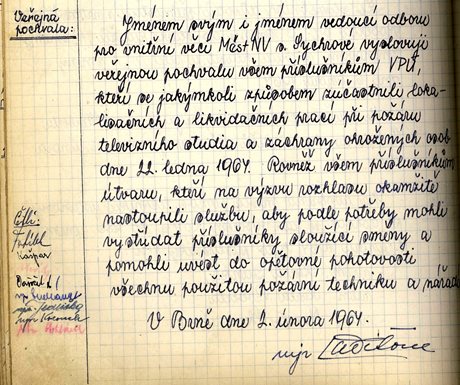 Veřejná
pochvala:
Jménem svým i jménem vedoucí odboru
pro vnitřní věci Měst NV s. Sychrové vyslovuji
veřejnou pochvalu všem příslušníkům VPÚ,
kteří se jakýmkoli způsobem zúčastnili loka-
lisačních a likvidačních prací při požáru
televizního studia a záchrany ohrožených osob
dne 22. ledna 1964. Rovněž všem příslušníkům
útvaru, kteří na výzvu rozhlasu okamžitě
nastoupili službu, aby podle potřeby mohli
vystřídat příslušníky sloužící směny a
pomohli uvést do opětovné pohotovosti
všechnu použitou požární techniku a nářadí
V Brně dne 2. února 1964.
mjr
Četli:
Kašpar